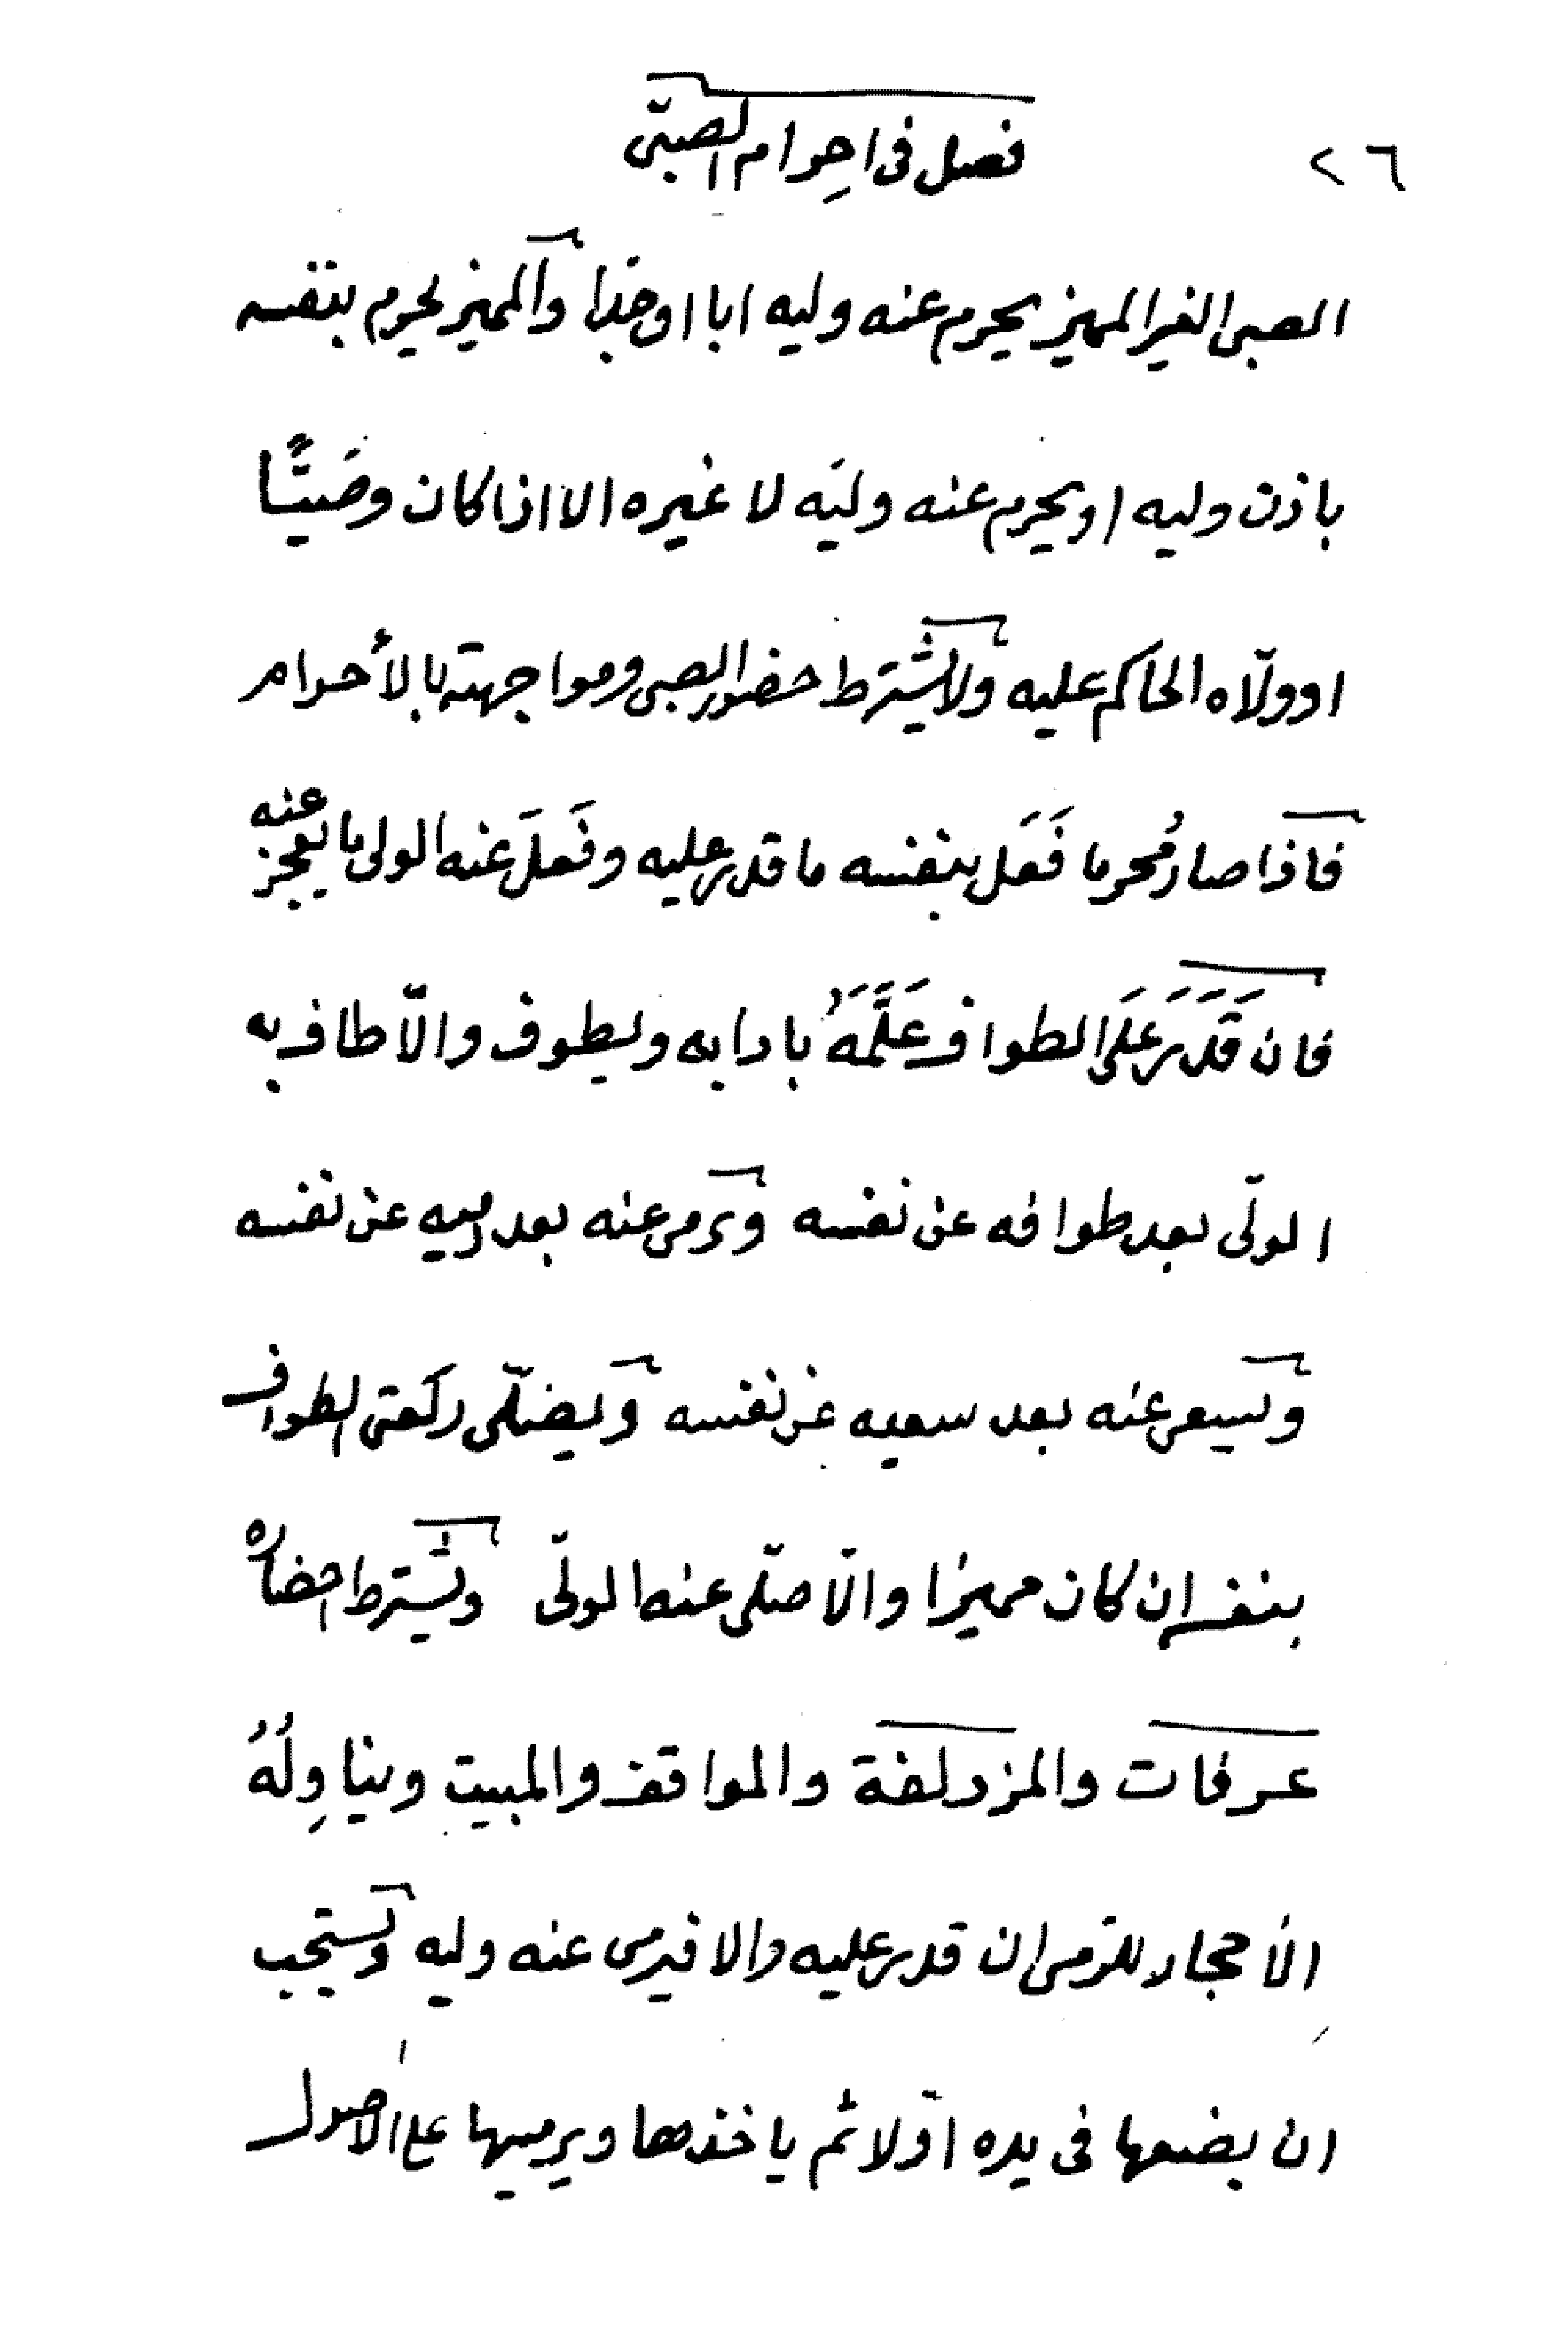 ٢٦
فصل فى احرام الصبّى
الصبى الغير المميز يحرم عنه وليه ابا او جدّا والمميز يحرم بنفسه
باذن وليه او يحرم عنه وليّه لا غيره الا اذا كان وصَيّاً
او ولّاه الحاكم عليه ولا يشترط حضور الصبى ومواجهته بالأحرام
فاذا صار مُحرما فَعَل بنفسه ما قدر عليه وفَعلَ عنه الولى ما يعجز عنه
فان قَدَرَ عَلَى الطواف عَلَّمَهُ بادابه ويطوف والّا طاف به
الولّى بعد طوافه عن نفسه ويرمى عنه بعد رميه عن نفسه
ويسعى عنه بعد سعيه عن نفسه ويصّلى ركعتى الطواف
بنفسه ان كان مميزا والّا صلّى عنه الولّى ويشترط احضاره
عرفات والمزدلفة والمواقف والمبيت ويناوِلُهُ
الأحجار للرّمى ان قدر عليه والا فيرمى عنه وليه ويستحب
ان يضعها فى يده اوّلا ثم ياخذها ويرميها على الاصول